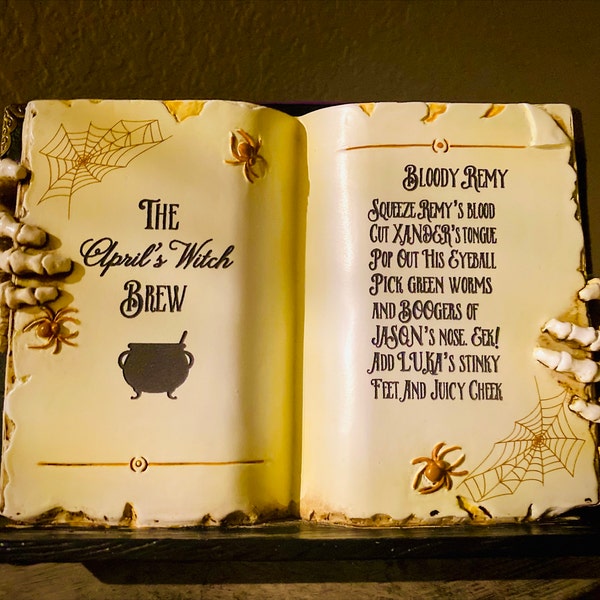 The
April's Witch
Brew
Bloody Remy
Squeeze Remy's blood
Cut XANDER'S tongue
Pop Out His Eyeball
Pick green worms
and BOOgers of
JASON's nose. Eek!
Add LUKA's stinky
Feet And Juicy Cheek